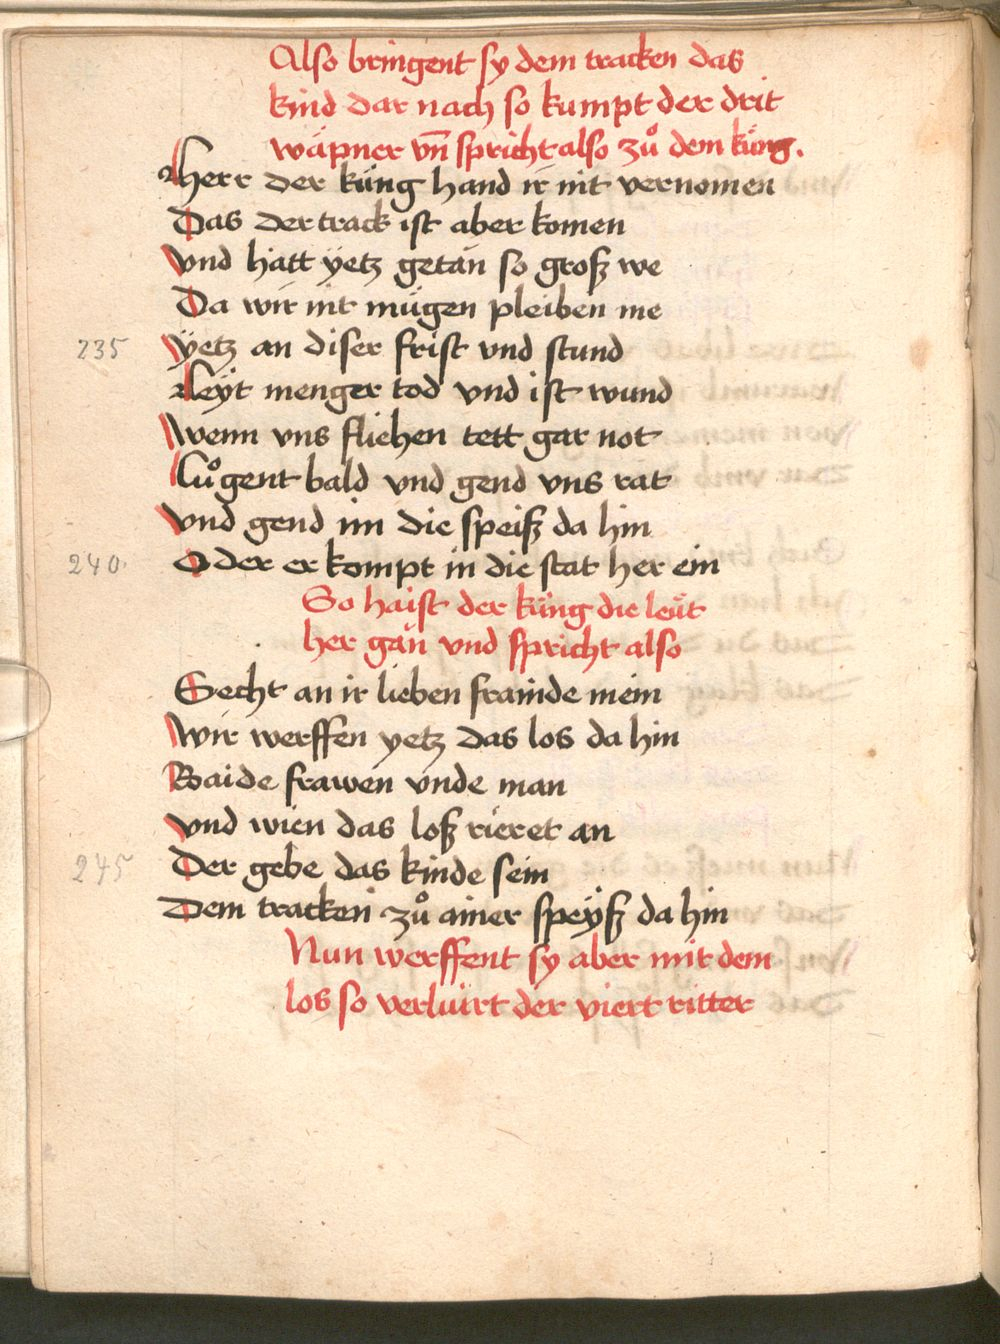 Also bringent sy dem tracken das
kind dar nach so kumpt der drit
wäpner vn̄ spricht also zů dem küng.
Herr der küng hand ir nit vernomen
Das der track ist aber komen
vnd hatt yetz getän so groß we
Da wir nit mügen pleiben me
235 ÿetz an diser frist vnd stund
Leÿt menger tod vnd ist wund
wenn vns fliehen tett gar not
Lůgent bald vnd gend vns rät
vnd gend im die speiß da hin
240. Oder er kompt in die stat her ein
So haist der küng die leüt
her gän vnd spricht also
Secht an ir lieben frainde mein
wir werffen yetz das los da hin
Baide frawen vnde man
vnd wien das loß rieret an
245 Der gebe das kinde sein
Dem tracken zů ainer speyß da hin
Nun werffent sy aber mit dem
los so verluirt der viert ritter